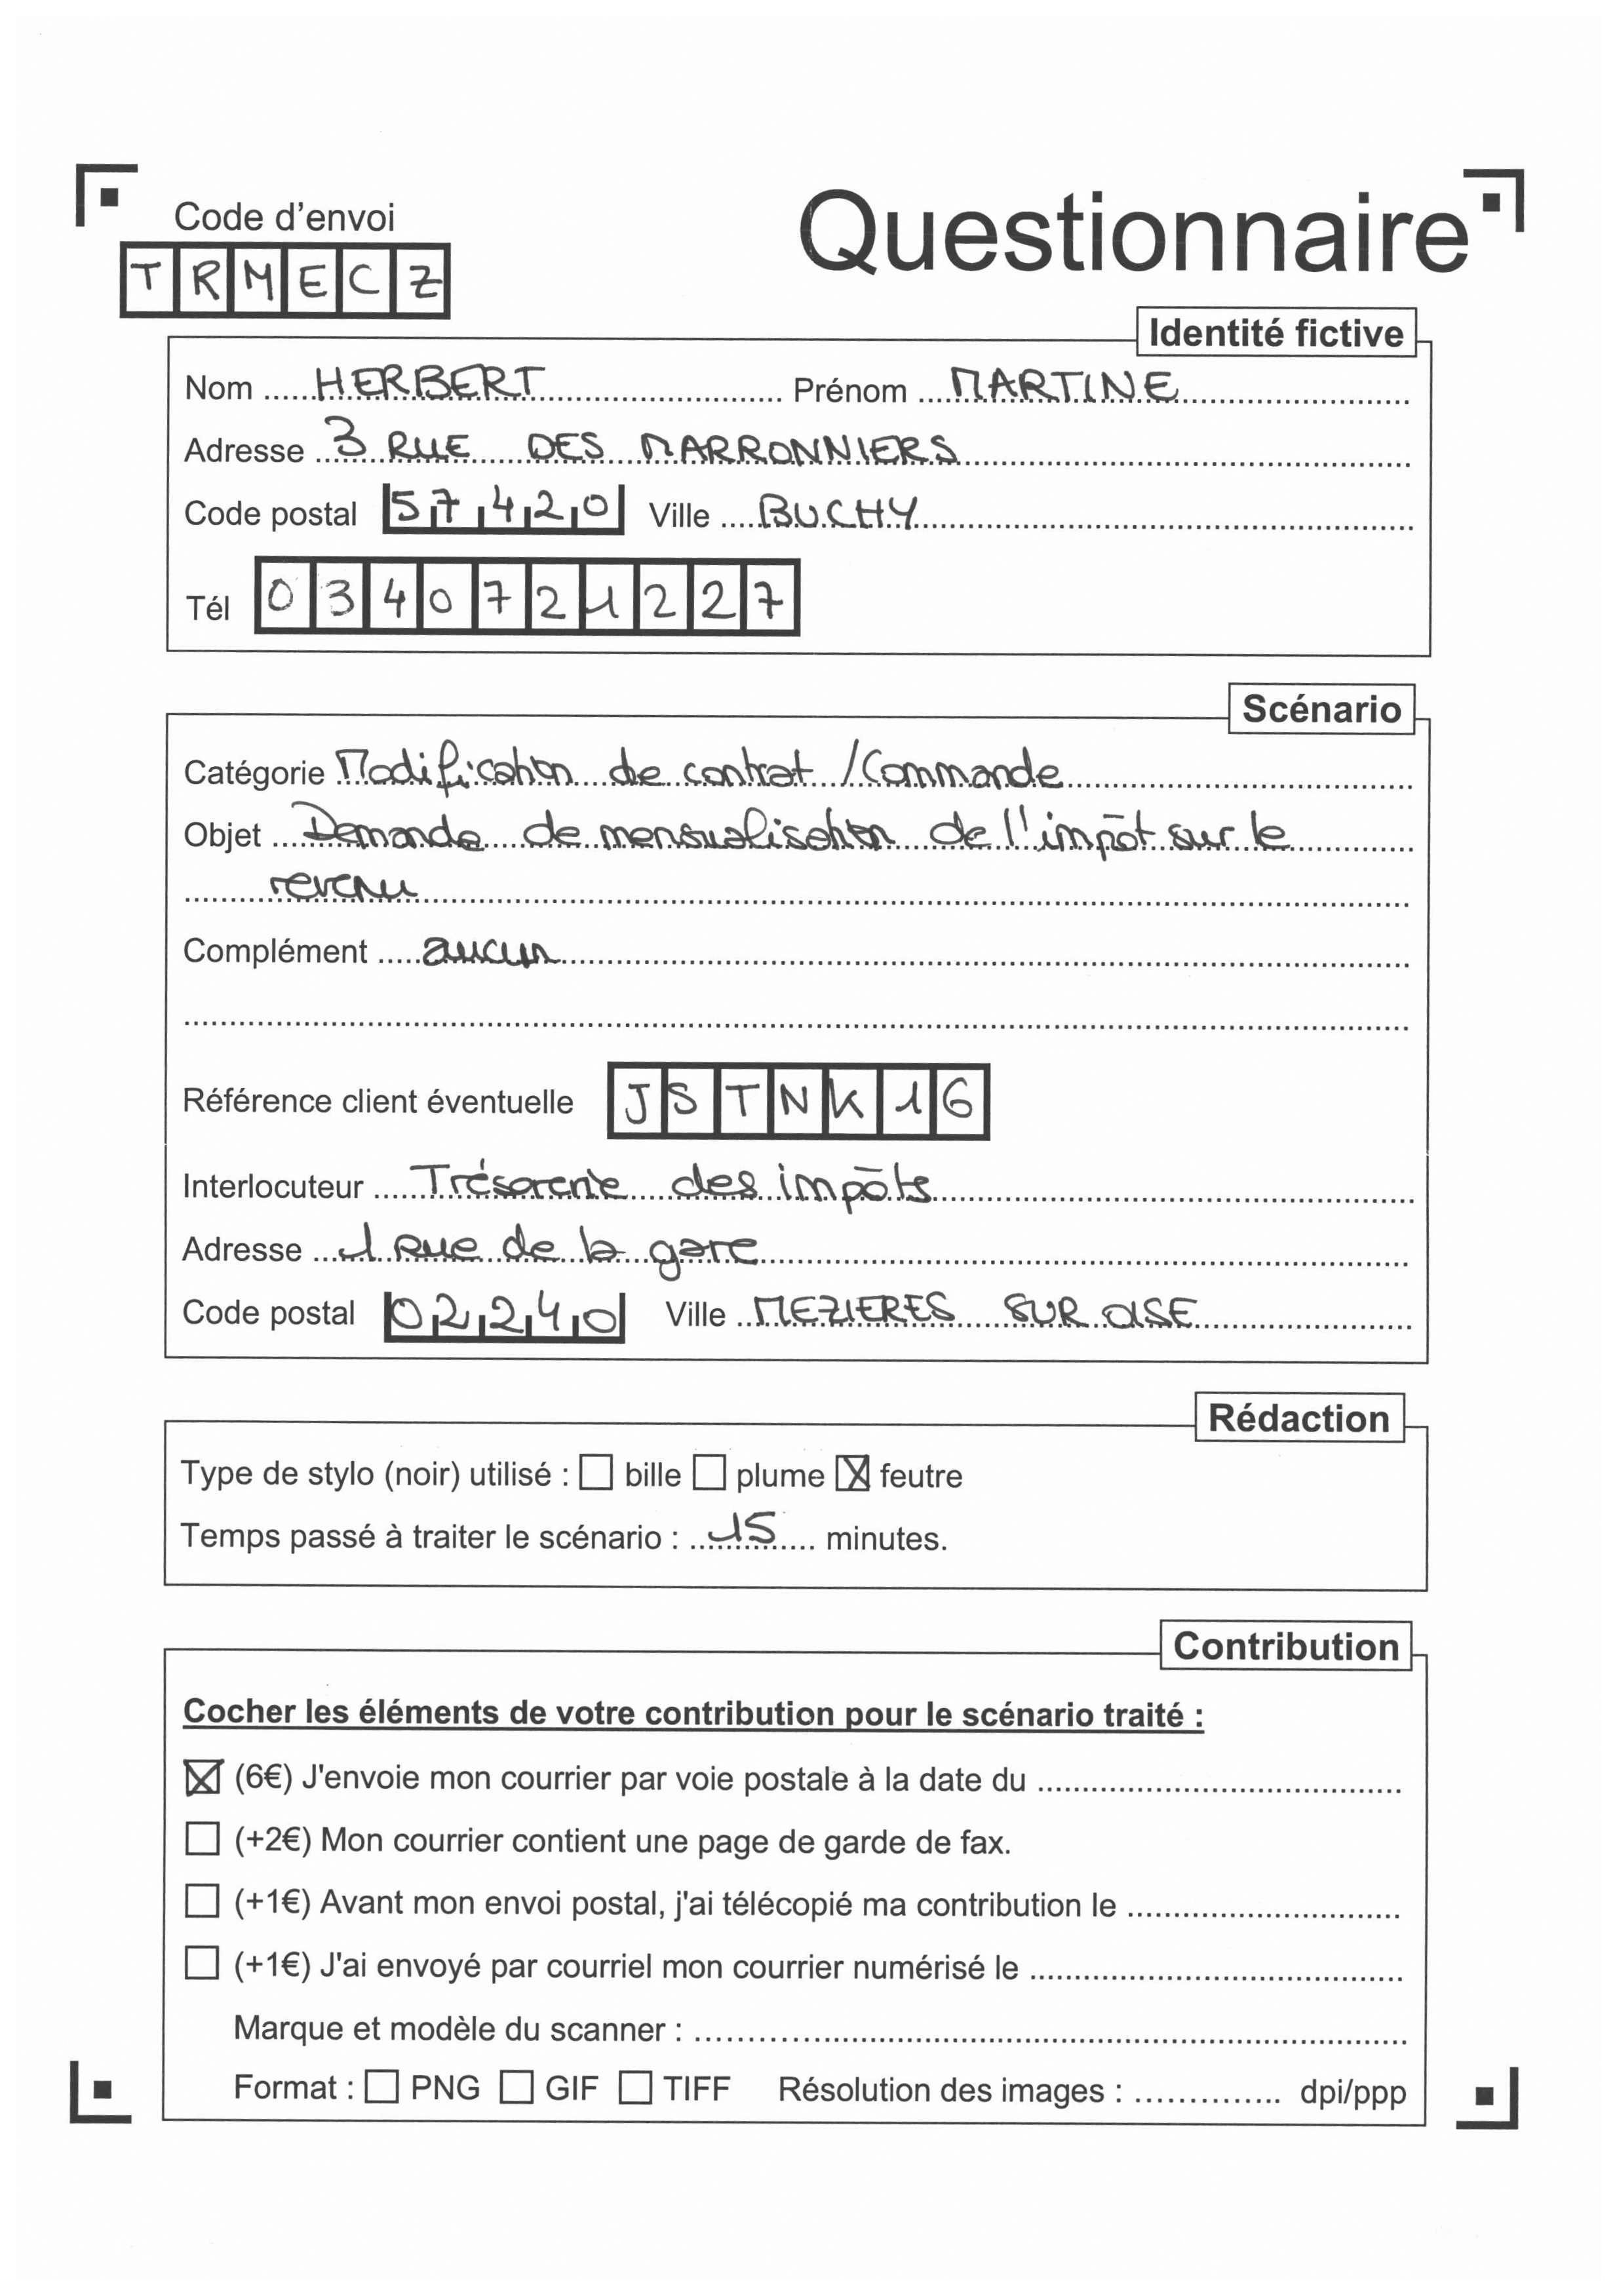 Code d'envoi
Questionnaire
TRMECZ
Identité fictive
Nom HERBERT Prénom MARTINE
Adresse 3 RUE DES MARRONNIERS
Code postal 57420 Ville BUCHY
Tél 0340721227
Scénario
Catégorie Modification de contrat / Commande
Objet Demande de mensualisation de l'impôt sur le
revenu
Complément aucun
Référence client éventuelle JSTNK16
Interlocuteur Trésorerie des impôts
Adresse 1 Rue de la gare
Code postal 02240 Ville MEZIERES SUR OISE
Rédaction
Type de stylo (noir) utilisé : ☐ bille ☐ plume ☒ feutre
Temps passé à traiter le scénario : 15 minutes.
Contribution
Cocher les éléments de votre contribution pour le scénario traité :
☒ (6€) J'envoie mon courrier par voie postale à la date du
☐ (+2€) Mon courrier contient une page de garde de fax.
☐ (+1€) Avant mon envoi postal, j'ai télécopié ma contribution le
☐ (+1€) J'ai envoyé par courriel mon courrier numérisé le
Marque et modèle du scanner :
Format : ☐ PNG ☐ GIF ☐ TIFF Résolution des images : dpi/ppp